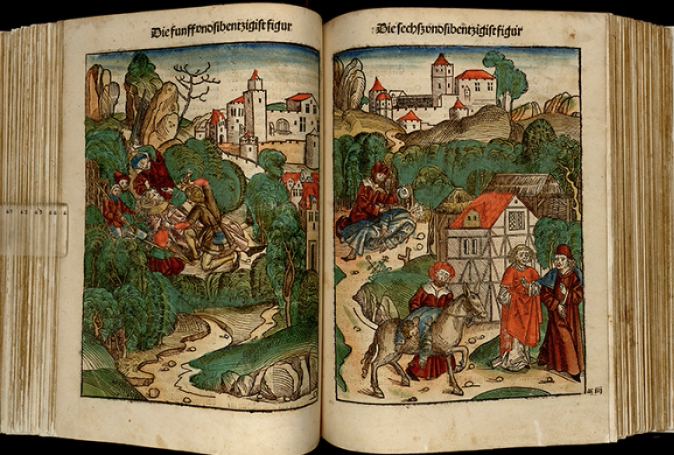 Die funff vnd sibentzigist figur
Die sechß vnd sibentzigist figur